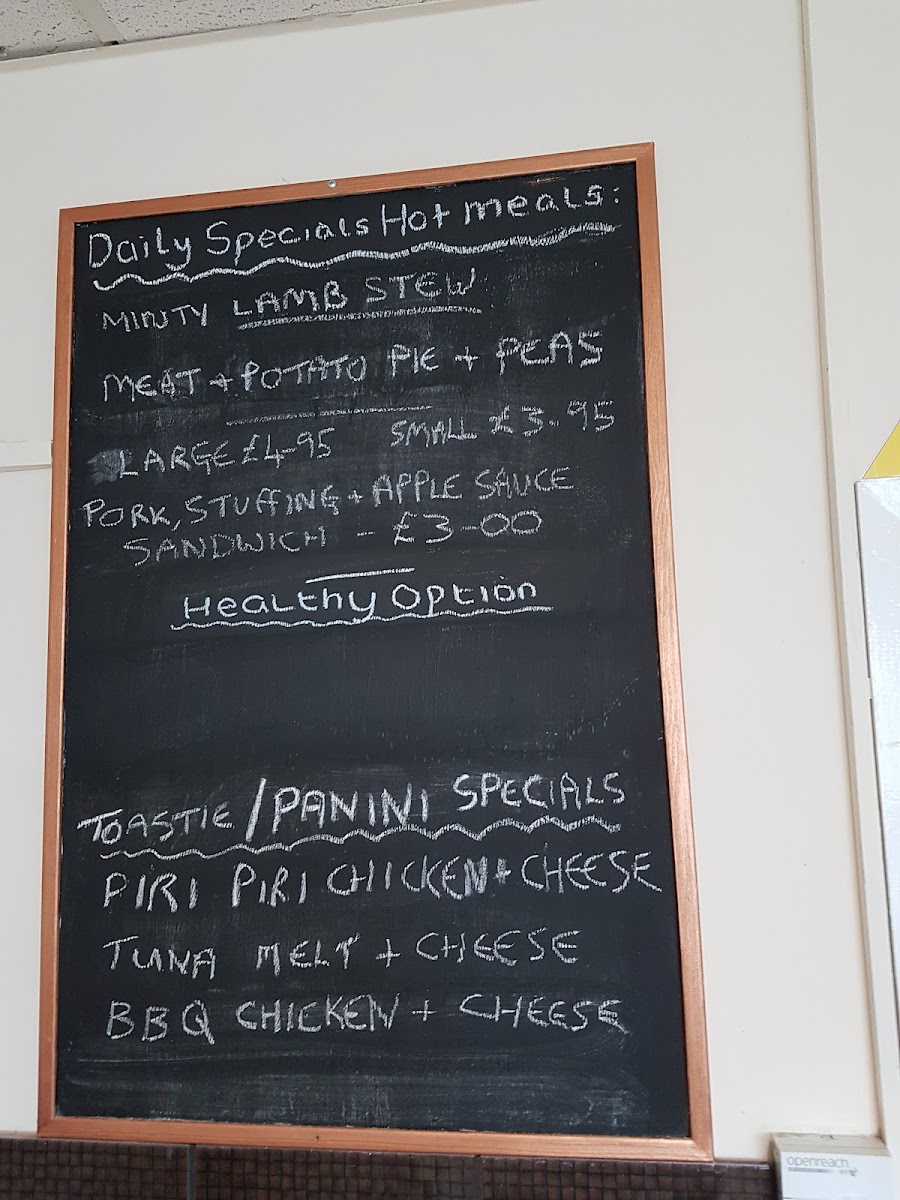 Daily Specials Hot meals:
MINTY LAMB STEW
MEAT + POTATO PIE + PEAS
LARGE £4-95 SMALL £3.95
PORK, STUFFING + APPLE SAUCE
SANDWICH - £3-00
Healthy Option
TOASTIE / PANINI SPECIALS
PIRI PIRI CHICKEN + CHEESE
TUNA MELT + CHEESE
BBQ CHICKEN + CHEESE
openreach